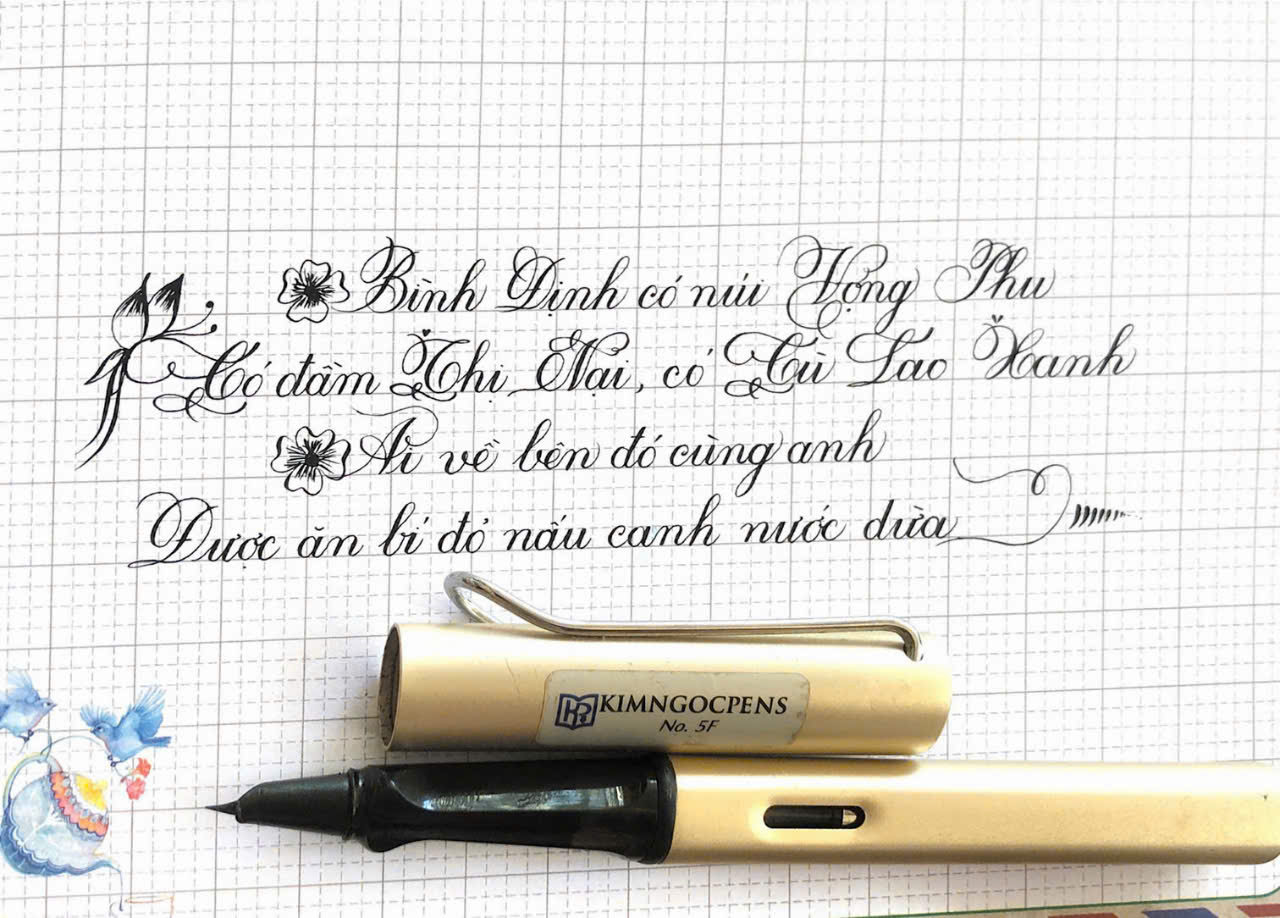 Bình Định có núi Vọng Phu
Có đầm Thị Nại, có Cù Lao Xanh
Ai về bên đó cùng anh
Được ăn bí đỏ nấu canh nước dừa
KIMNGOCPENS
No. 5F